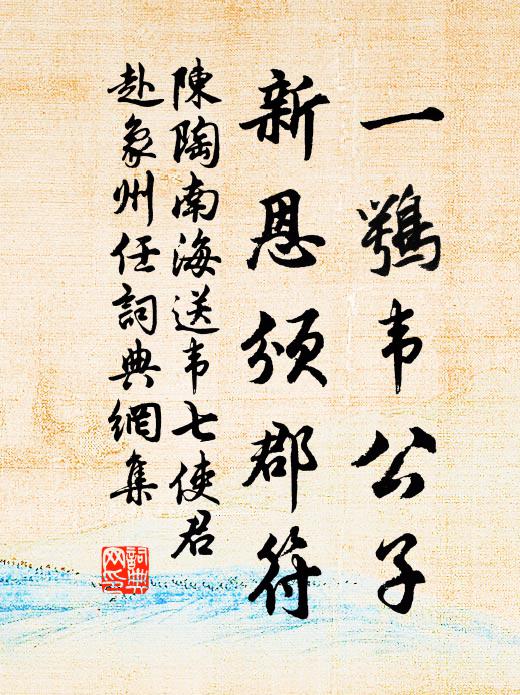 一鶚韦公子
新恩颁郡符
陳陶南海送韦七使君
赴象州任詞典網集
詞典网印